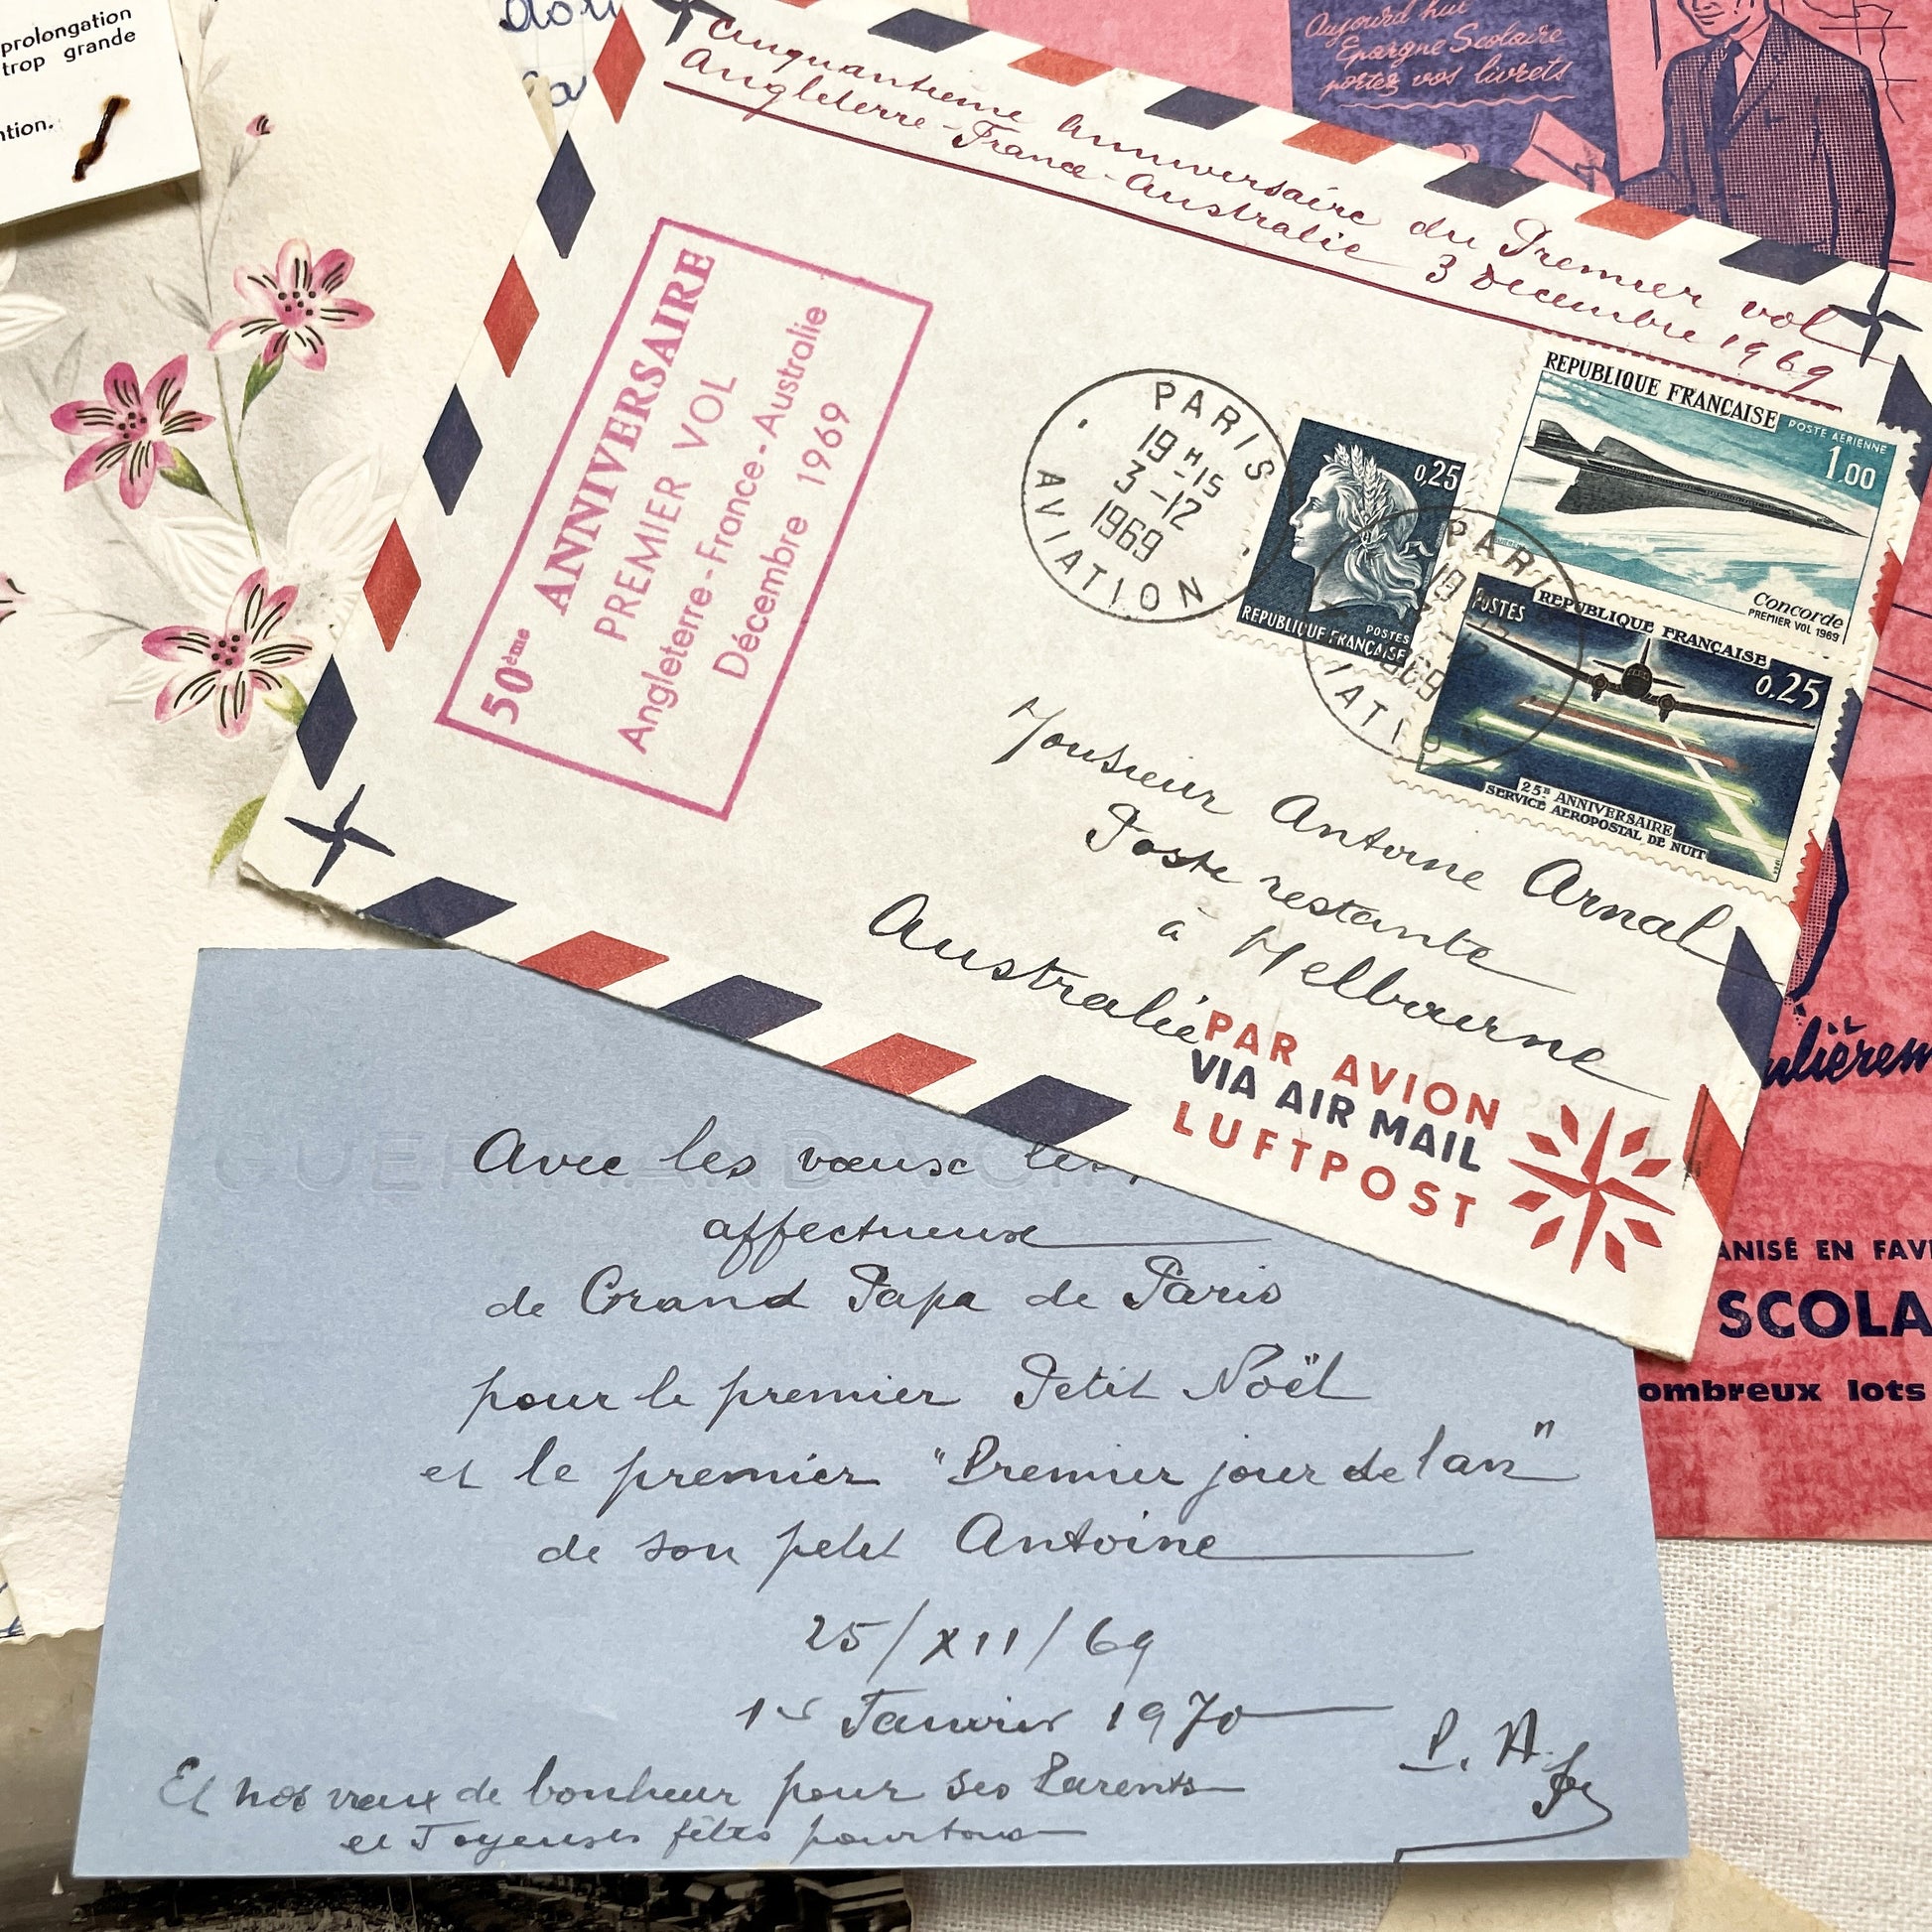 prolongation
trop grande
ntion.
Aujourd hui
Epargne Scolaire
portez vos livrets
Cinquantième Anniversaire du Premier vol
Angleterre-France-Australie 3 Décembre 1969
50ème ANNIVERSAIRE
PREMIER VOL
Angleterre-France-Australie
Décembre 1969
PARIS
19H15
3-12
1969
AVIATION
0,25
POSTES
REPUBLIQUE FRANÇAISE
REPUBLIQUE FRANÇAISE
POSTE AERIENNE
1.00
Concorde
PREMIER VOL 1969
POSTES
REPUBLIQUE FRANÇAISE
0.25
25E ANNIVERSAIRE
SERVICE AEROPOSTAL DE NUIT
Monsieur Antoine Arnal
Poste restante
à Melbourne
Australie
PAR AVION
VIA AIR MAIL
LUFTPOST
ulièrem
ANISÉ EN FAV
SCOLA
ombreux lots
Avec les vœux les
affectueux
de Grand Papa de Paris
pour le premier Petit Noël
et le premier "Premier jour de l an"
de son petit Antoine
25/XII/69
1er Janvier 1970
P. A.
Et nos vœux de bonheur pour ses Parents
et Joyeuses fêtes pour tous